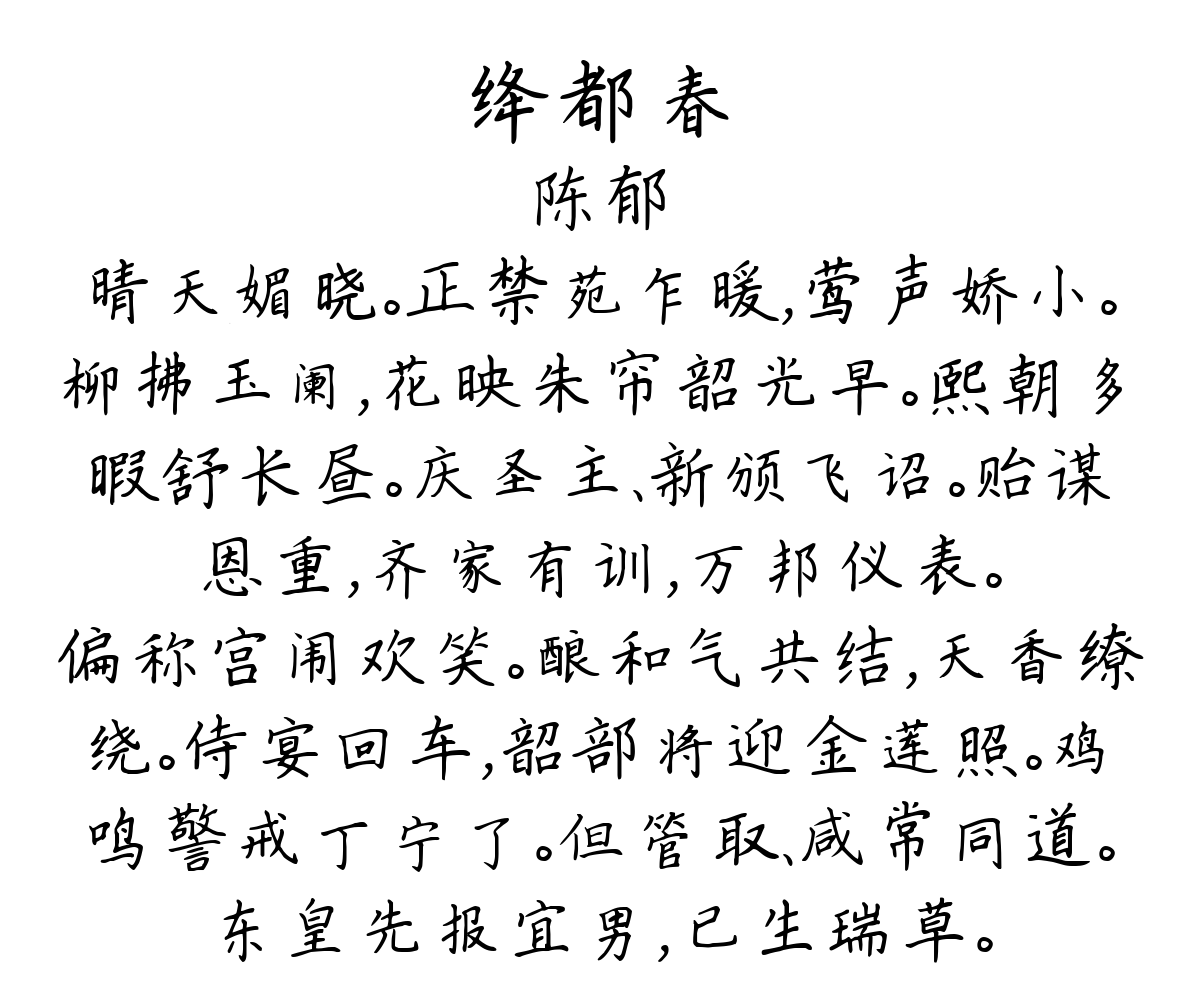 绛都春
陈郁
晴天媚晓。正禁苑乍暖,莺声娇小。
柳拂玉阑,花映朱帘韶光早。熙朝多
暇舒长昼。庆圣主、新颁飞诏。贻谋
恩重,齐家有训,万邦仪表。
偏称宫闱欢笑。酿和气共结,天香缭
绕。侍宴回车,韶部将迎金莲照。鸡
鸣警戒丁宁了。但管取、咸常同道。
东皇先报宜男,已生瑞草。